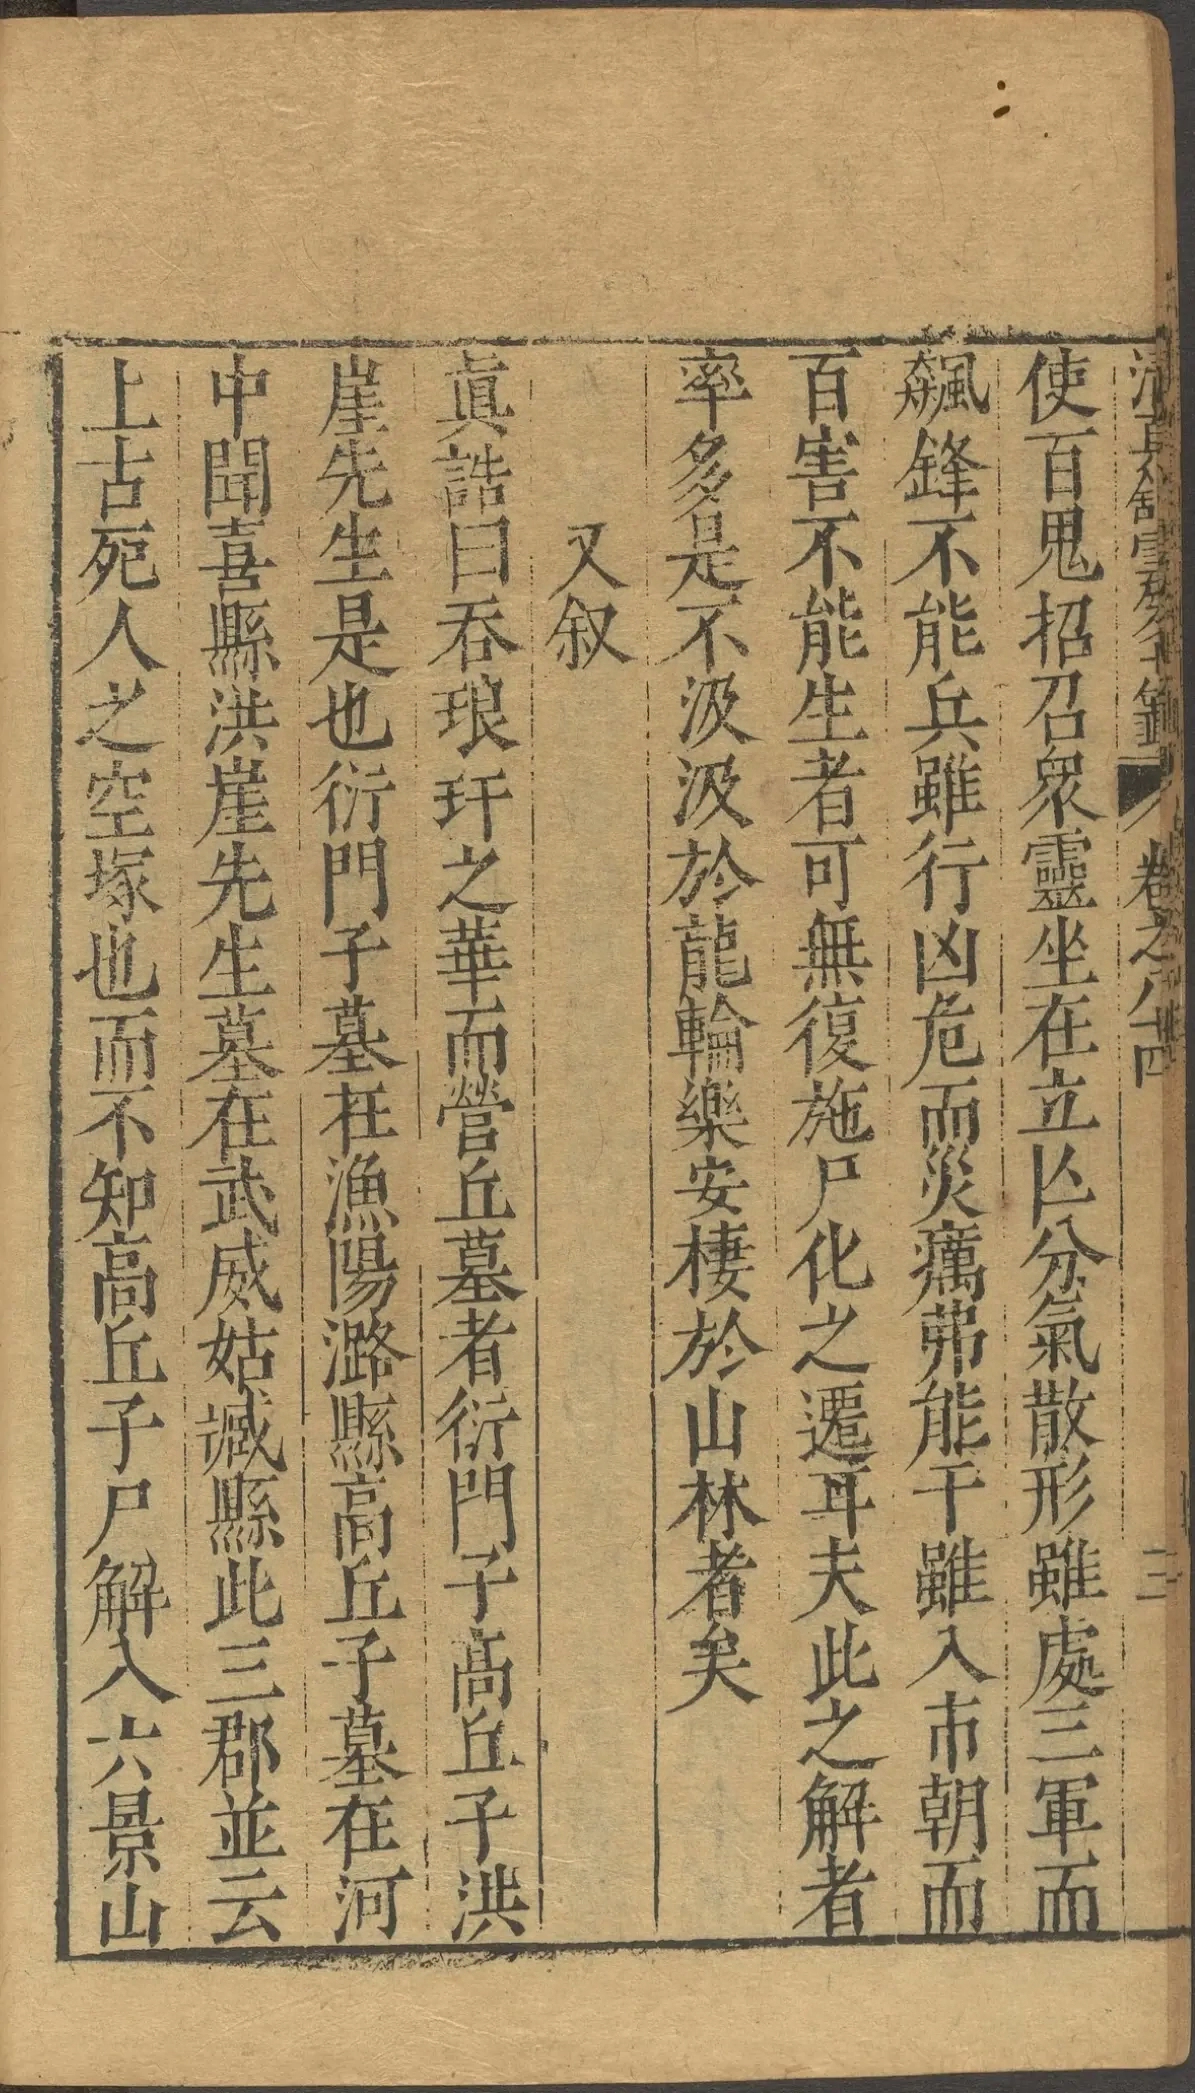 清真館雲笈七籤 卷之八十四 三
使百鬼招召眾靈坐在立亾分氣散形雖處三軍而
飆鋒不能兵雖行凶危而災癘弗能干雖入市朝而
百害不能生者可無復施尸化之遷耳夫此之解者
率多是不汲汲於龍輪樂安棲於山林者矣
又叙
真誥曰吞琅玕之華而營丘墓者衍門子高丘子洪
崖先生是也衍門子墓在漁陽潞縣高丘子墓在河
中聞喜縣洪崖先生墓在武威姑臧縣此三郡並云
上古死人之空塚也而不知高丘子尸解入六景山